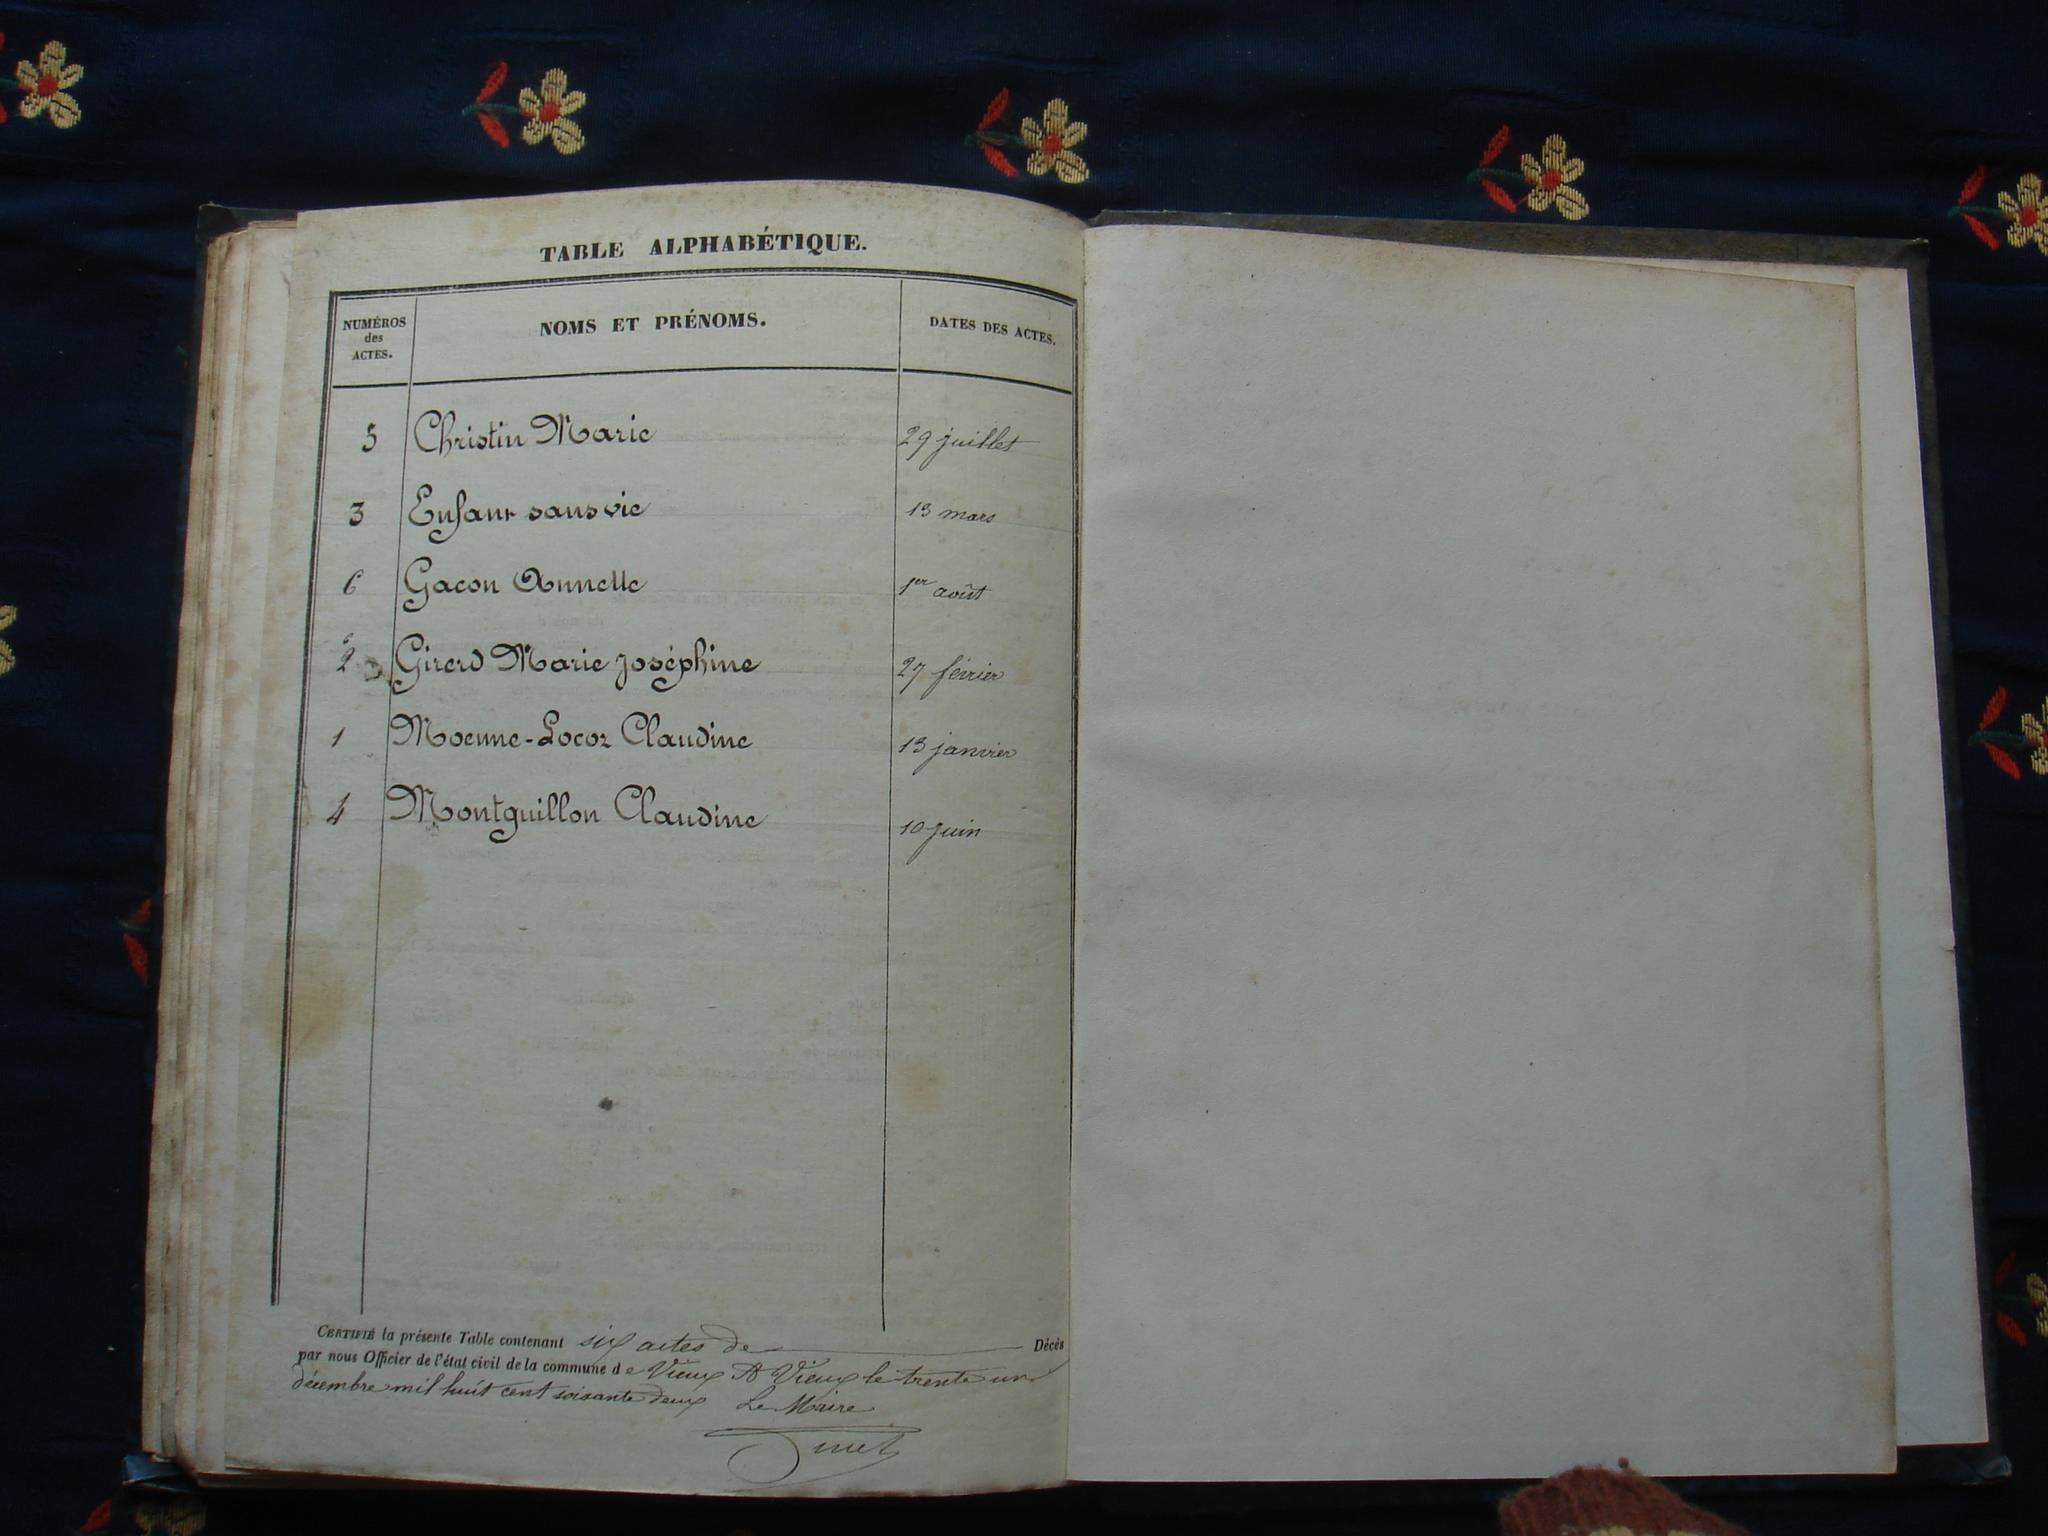 TABLE ALPHABÉTIQUE.
NUMÉROS des ACTES. NOMS ET PRÉNOMS. DATES DES ACTES.
5 Christin Marie 29 juillet
3 Enfant sans vie 13 mars
6 Gacon Annette 1er août
2 Girerd Marie Joséphine 27 février
1 Moenne-Locoz Claudine 13 janvier
4 Montguillon Claudine 10 juin
CERTIFIÉ la présente Table contenant six actes de Décès
par nous Officier de l'état civil de la commune de Vieux le trente un
décembre mil huit cent soixante deux Le Maire